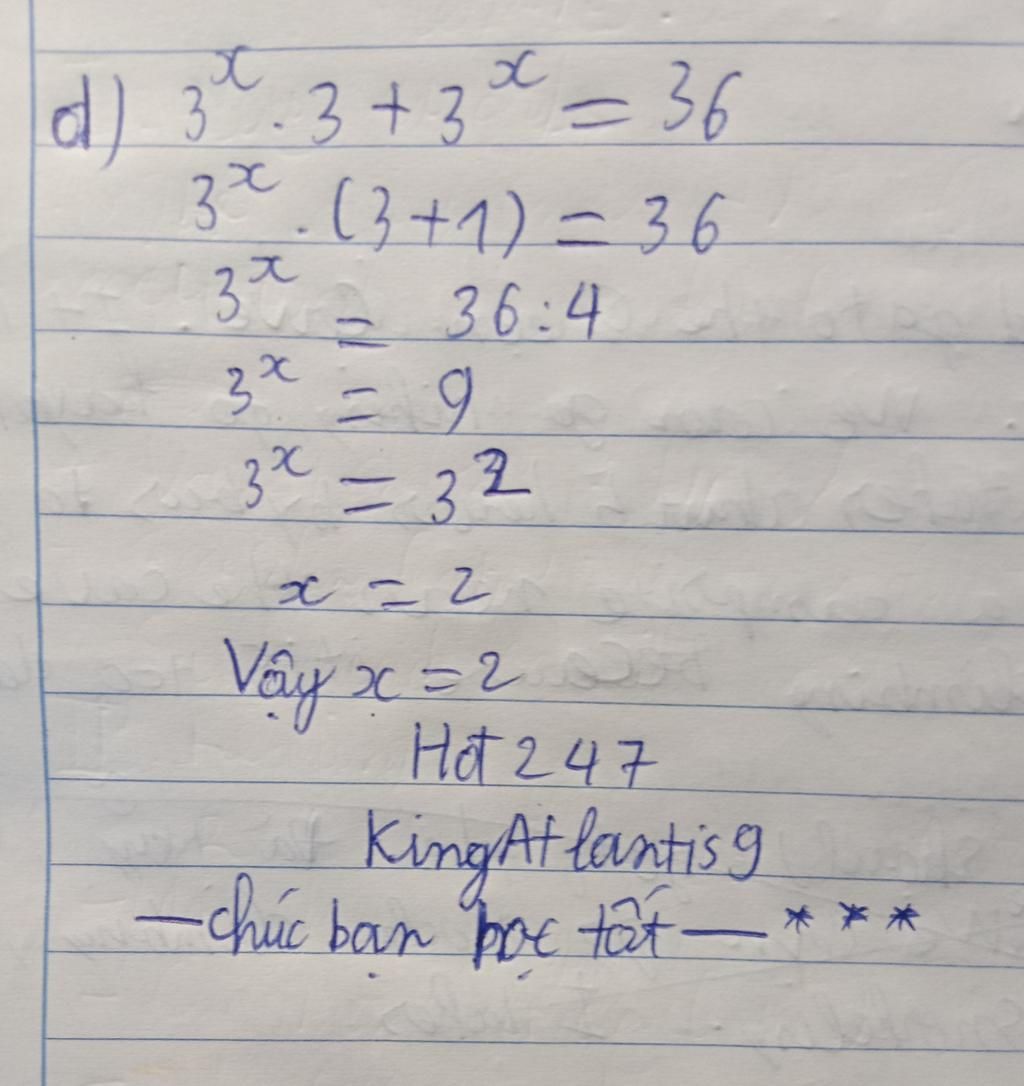 d) 3^x . 3 + 3^x = 36
3^x . (3+1) = 36
3^x = 36:4
3^x = 9
3^x = 3^2
x = 2
Vậy x = 2
Hot 247
KingAtlantis9
— chúc bạn học tốt — * * *